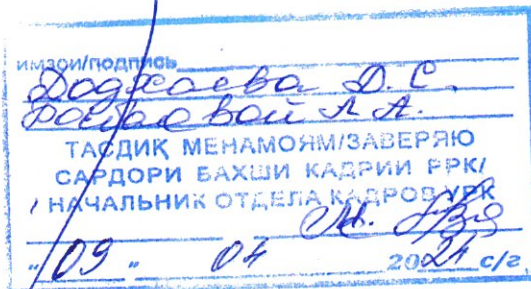 имзои/подпись
Додхоева Д.С.
Л А.
ТАСДИҚ МЕНАМОЯМ/ЗАВЕРЯЮ
САРДОРИ БАХШИ КАДРИИ РРК/
НАЧАЛЬНИК ОТДЕЛА КАДРОВ УРК
"09" 04 2024 с/г